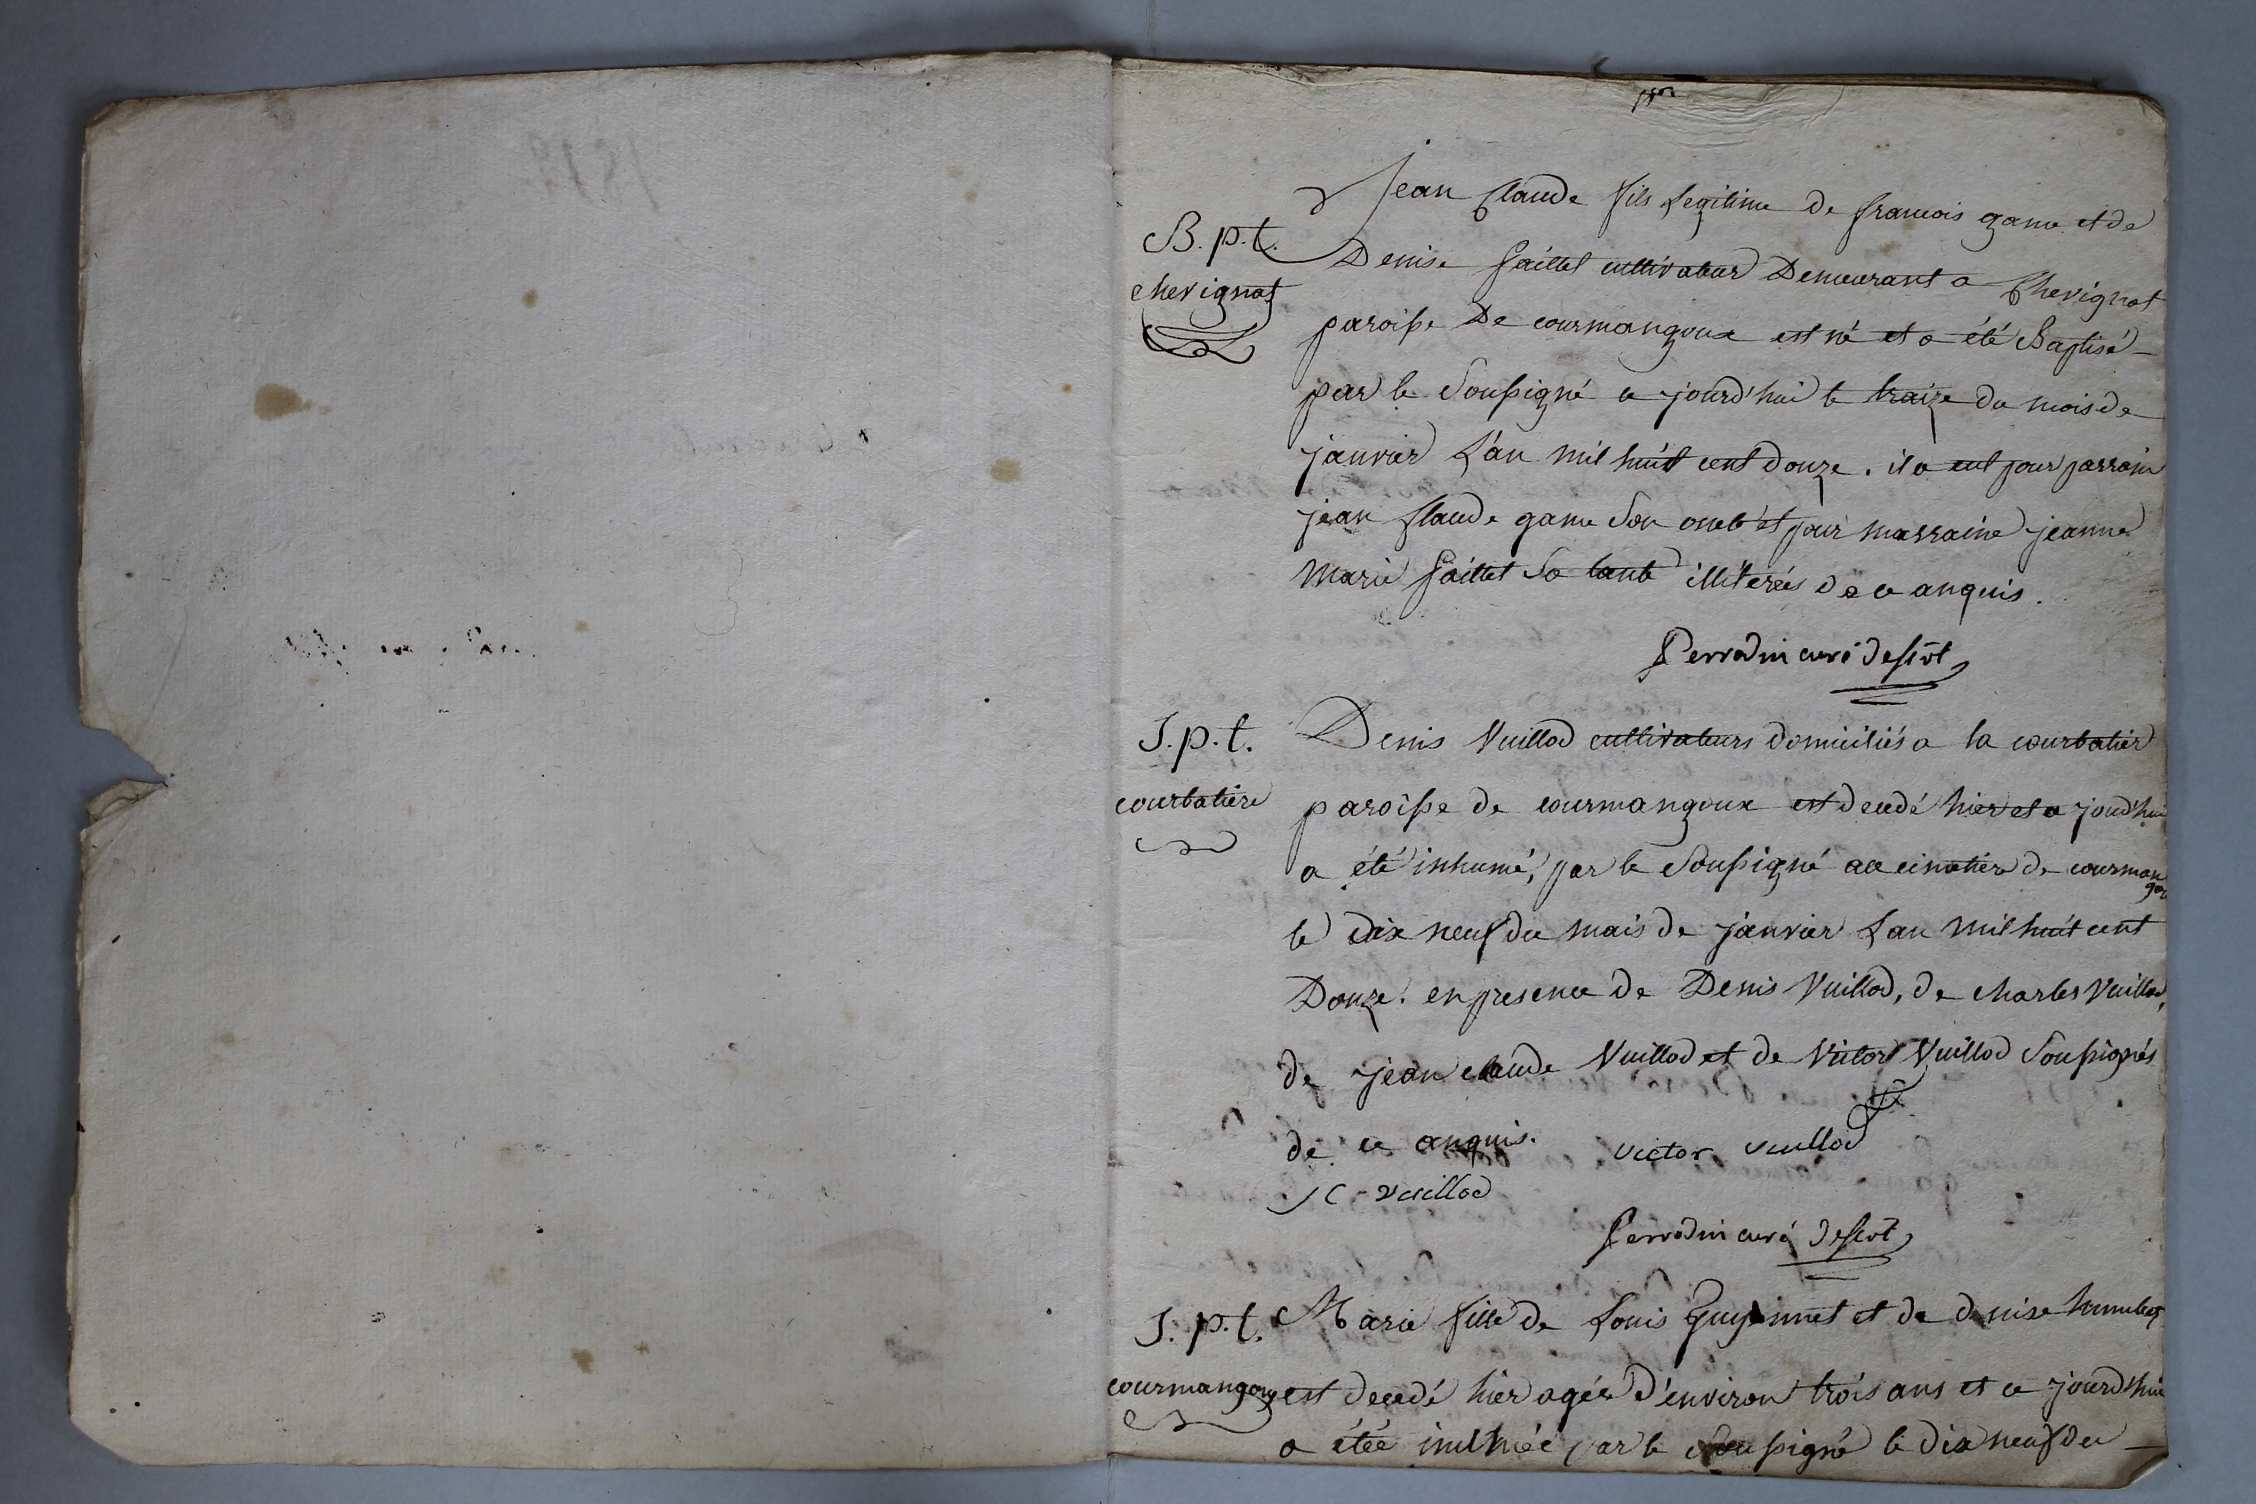 Jean Claude fils legitime de francois game et de
B. p. t.
Denise paillet cultivateur Demeurant a Chevignat
chevignat
paroisse De courmangoux est né et a été Baptisé
par le Soussigné ce jourd'hui le traize du mois de
janvier L'an mil huit cent douze. il a eut pour parrain
jean Claude game Son oncle et pour marraine jeanne
Marie paillet Sa tante illiterés de ce anquis.
Perrodin curé dessvt
J. p. t.
Denis Vuillod cultivateurs domiciliés a la courbatier
courbatiere
paroisse de courmangoux est decedé hier et ce jourd'hui
a été inhumé, par le Soussigné au cimetière de courmangou
le dix neuf du mois de janvier Lan mil huit cent
Douze. en presence de Denis Vuillod, de charles Vuillod,
de jean claude Vuillod et de Victor Vuillod Soussignés
de ce anquis. victor vuillod
J C vuillod
Perrodin curé dessvt
J. p. t.
Marie fille de Louis Guyennet et de denise humbert
courmangoux
est decedé hier agée d'environ trois ans et ce jourd'hui
a étée inhmée par le Soussigné le dix neuf du